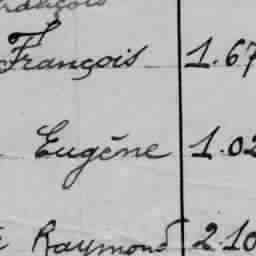 François
François 1.67
Eugène 1.02
Raymond 2.10